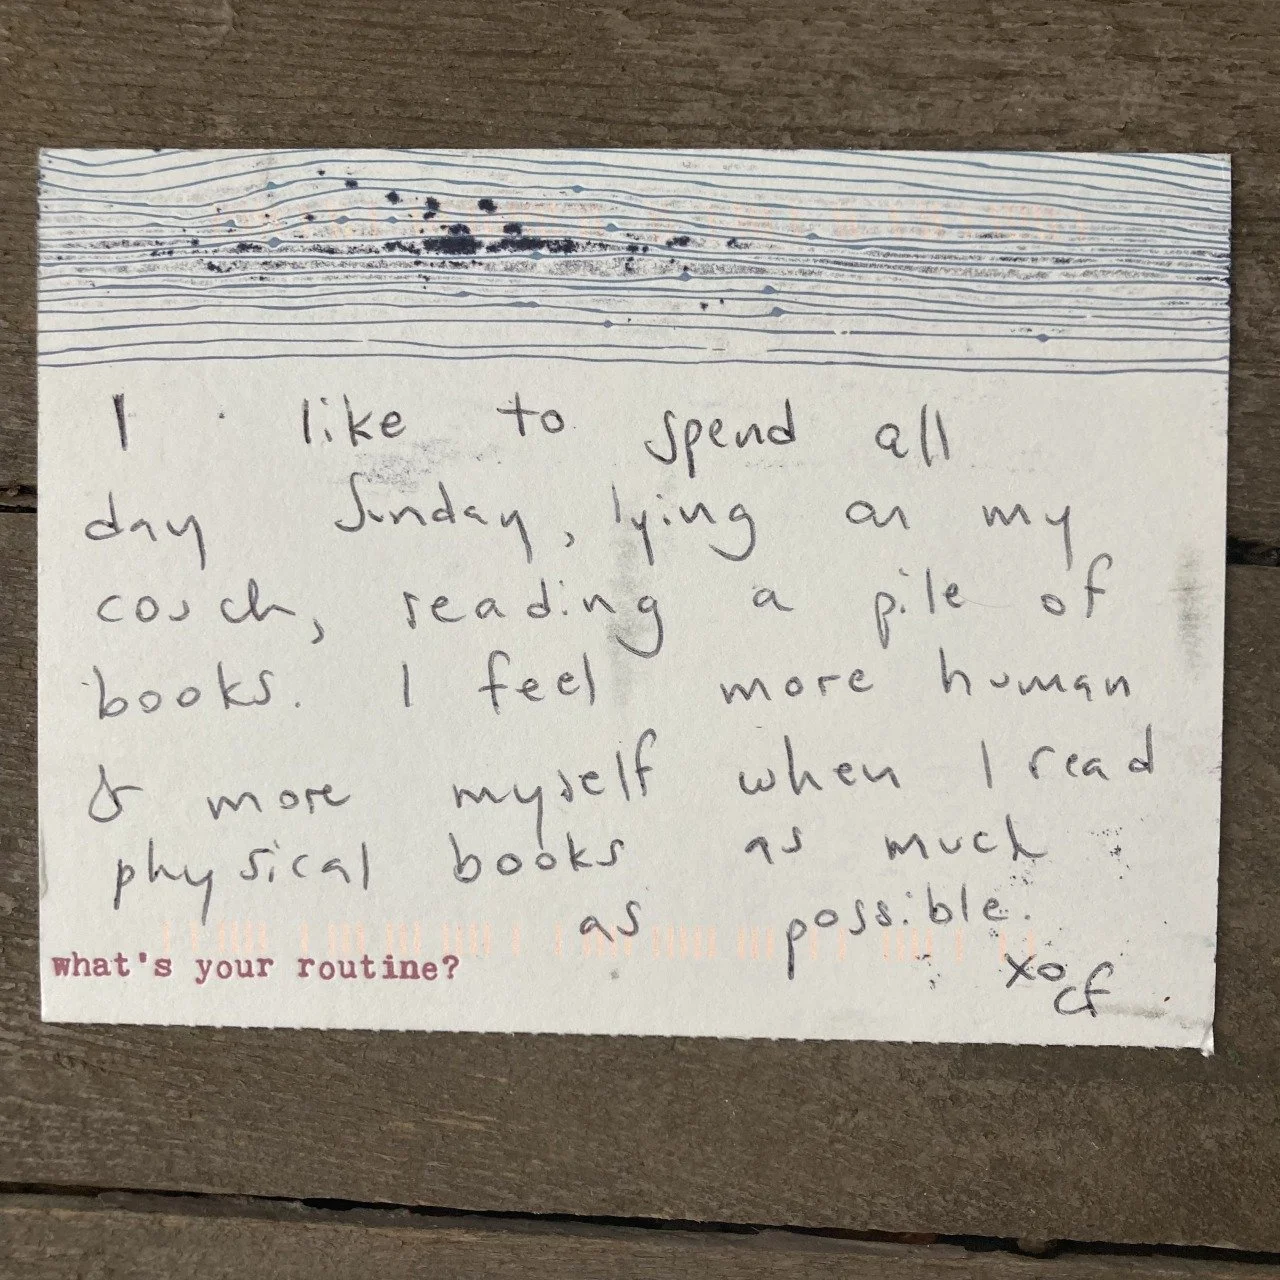 I like to spend all
day Sunday, lying on my
couch, reading a pile of
books. I feel more human
& more myself when I read
physical books as much
as possible.
what's your routine?
xo
cf